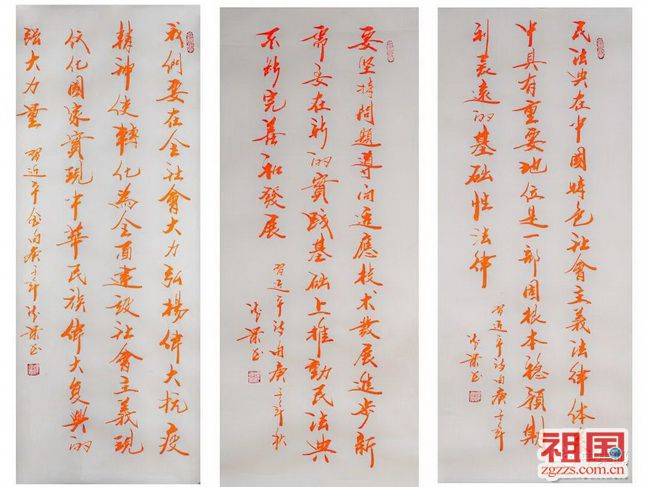 我們要在全社會大力弘揚偉大抗疫
精神使轉化為全面建設社會主義現
代化國家實現中華民族偉大复興的
强大力量 習近平金句庚子年
要坚持問題導向适應技术發展進步新
需要在新的實踐基础上推動民法典
不斷完善和發展
習近平金句庚子年秋
民法典在中國特色社會主義法律体
中具有重要地位是一部固根本稳預期
利長遠的基础性法律
習近平金句庚子年
祖国
zgzzs.com.cn